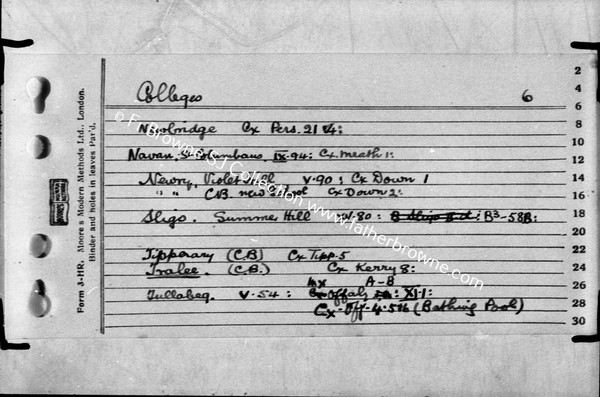 Colleges 6
Newbridge Cx Pers. 21 V4:
Navan, St Columbans. IX.94: Cx Meath 1:
Newry, Violet Hill V-90: Cx Down 1
" " C.B. new school Cx Down 2:
Sligo. Summer Hill V-80: B3-58B:
Tipperary (C.B) Cx Tipp-5
Tralee. (C.B.) Cx Kerry 8:
A-B
Tullabeg. V-54: Offaly XI-1:
Cx-Off-4-576 (Bathing Pool)
Form J-HR. Moore's Modern Methods Ltd., London.
Binder and holes in leaves Pat'd.
2
4
6
8
10
12
14
16
18
20
22
24
26
28
30
© Fr Browne SJ Collection
www.fatherbrowne.com